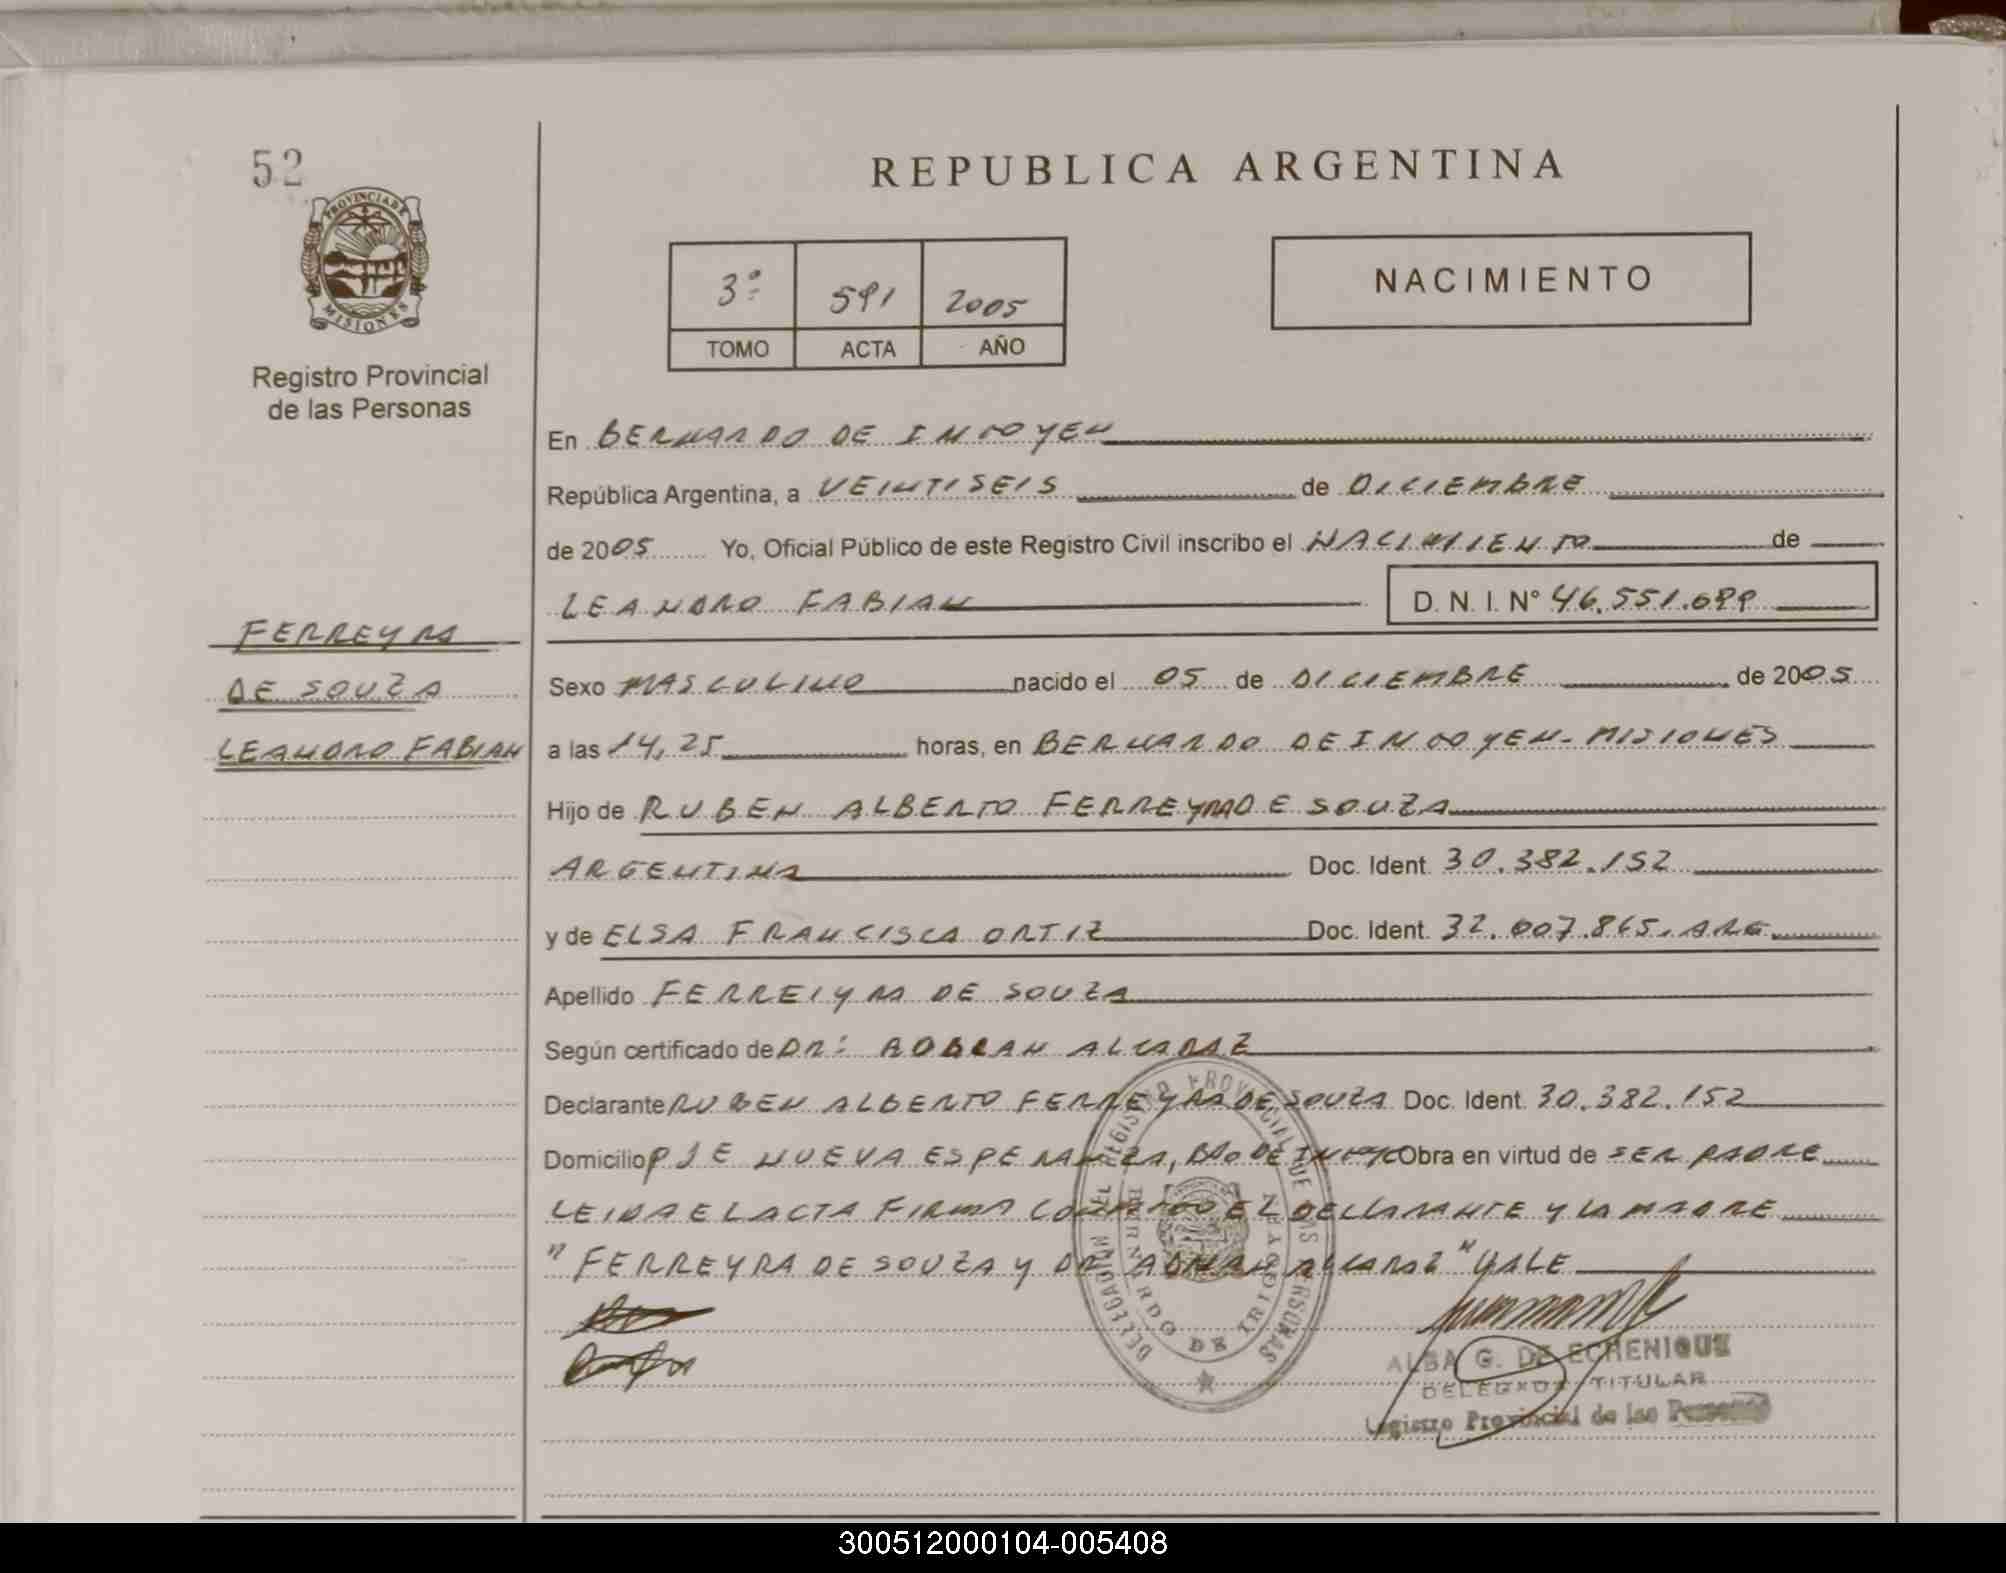 52
PROVINCIA DE
MISIONES
Registro Provincial
de las Personas
REPUBLICA ARGENTINA
3º 591 2005
TOMO ACTA AÑO
NACIMIENTO
En BERNARDO DE IRIGOYEN
República Argentina, a VEINTISEIS de DICIEMBRE
de 2005 Yo, Oficial Público de este Registro Civil inscribo el NACIMIENTO de
LEANDRO FABIAN D. N. I. N° 46.551.699
FERREYRA
DE SOUZA
LEANDRO FABIAN
Sexo MASCULINO nacido el 05 de DICIEMBRE de 2005
a las 14,25 horas, en BERNARDO DE IRIGOYEN-MISIONES
Hijo de RUBEN ALBERTO FERREYRA DE SOUZA
ARGENTINA Doc. Ident. 30.382.152
y de ELSA FRANCISCA ORTIZ Doc. Ident. 32.007.865. ARG.
Apellido FERREIYRA DE SOUZA
Según certificado de DR: ALCARAZ
Declarante RUBEN ALBERTO FERREYRA DE SOUZA Doc. Ident. 30.382.152
Domicilio PJE NUEVA ESPERANZA, BDO DE IRIGOY Obra en virtud de SER PADRE
LEIDA EL ACTA FIRMA CONMIGO EL DECLARANTE Y LA MADRE
"FERREYRA DE SOUZA Y DR ADRIAN ALCARAZ" VALE
DELEGACION DEL REGISTRO PROVINCIAL DE LAS PERSONAS
BERNARDO DE IRIGOYEN
ALBA G. DE ECHENIQUE
DELEGADA TITULAR
Registro Provincial de las Personas
300512000104-005408